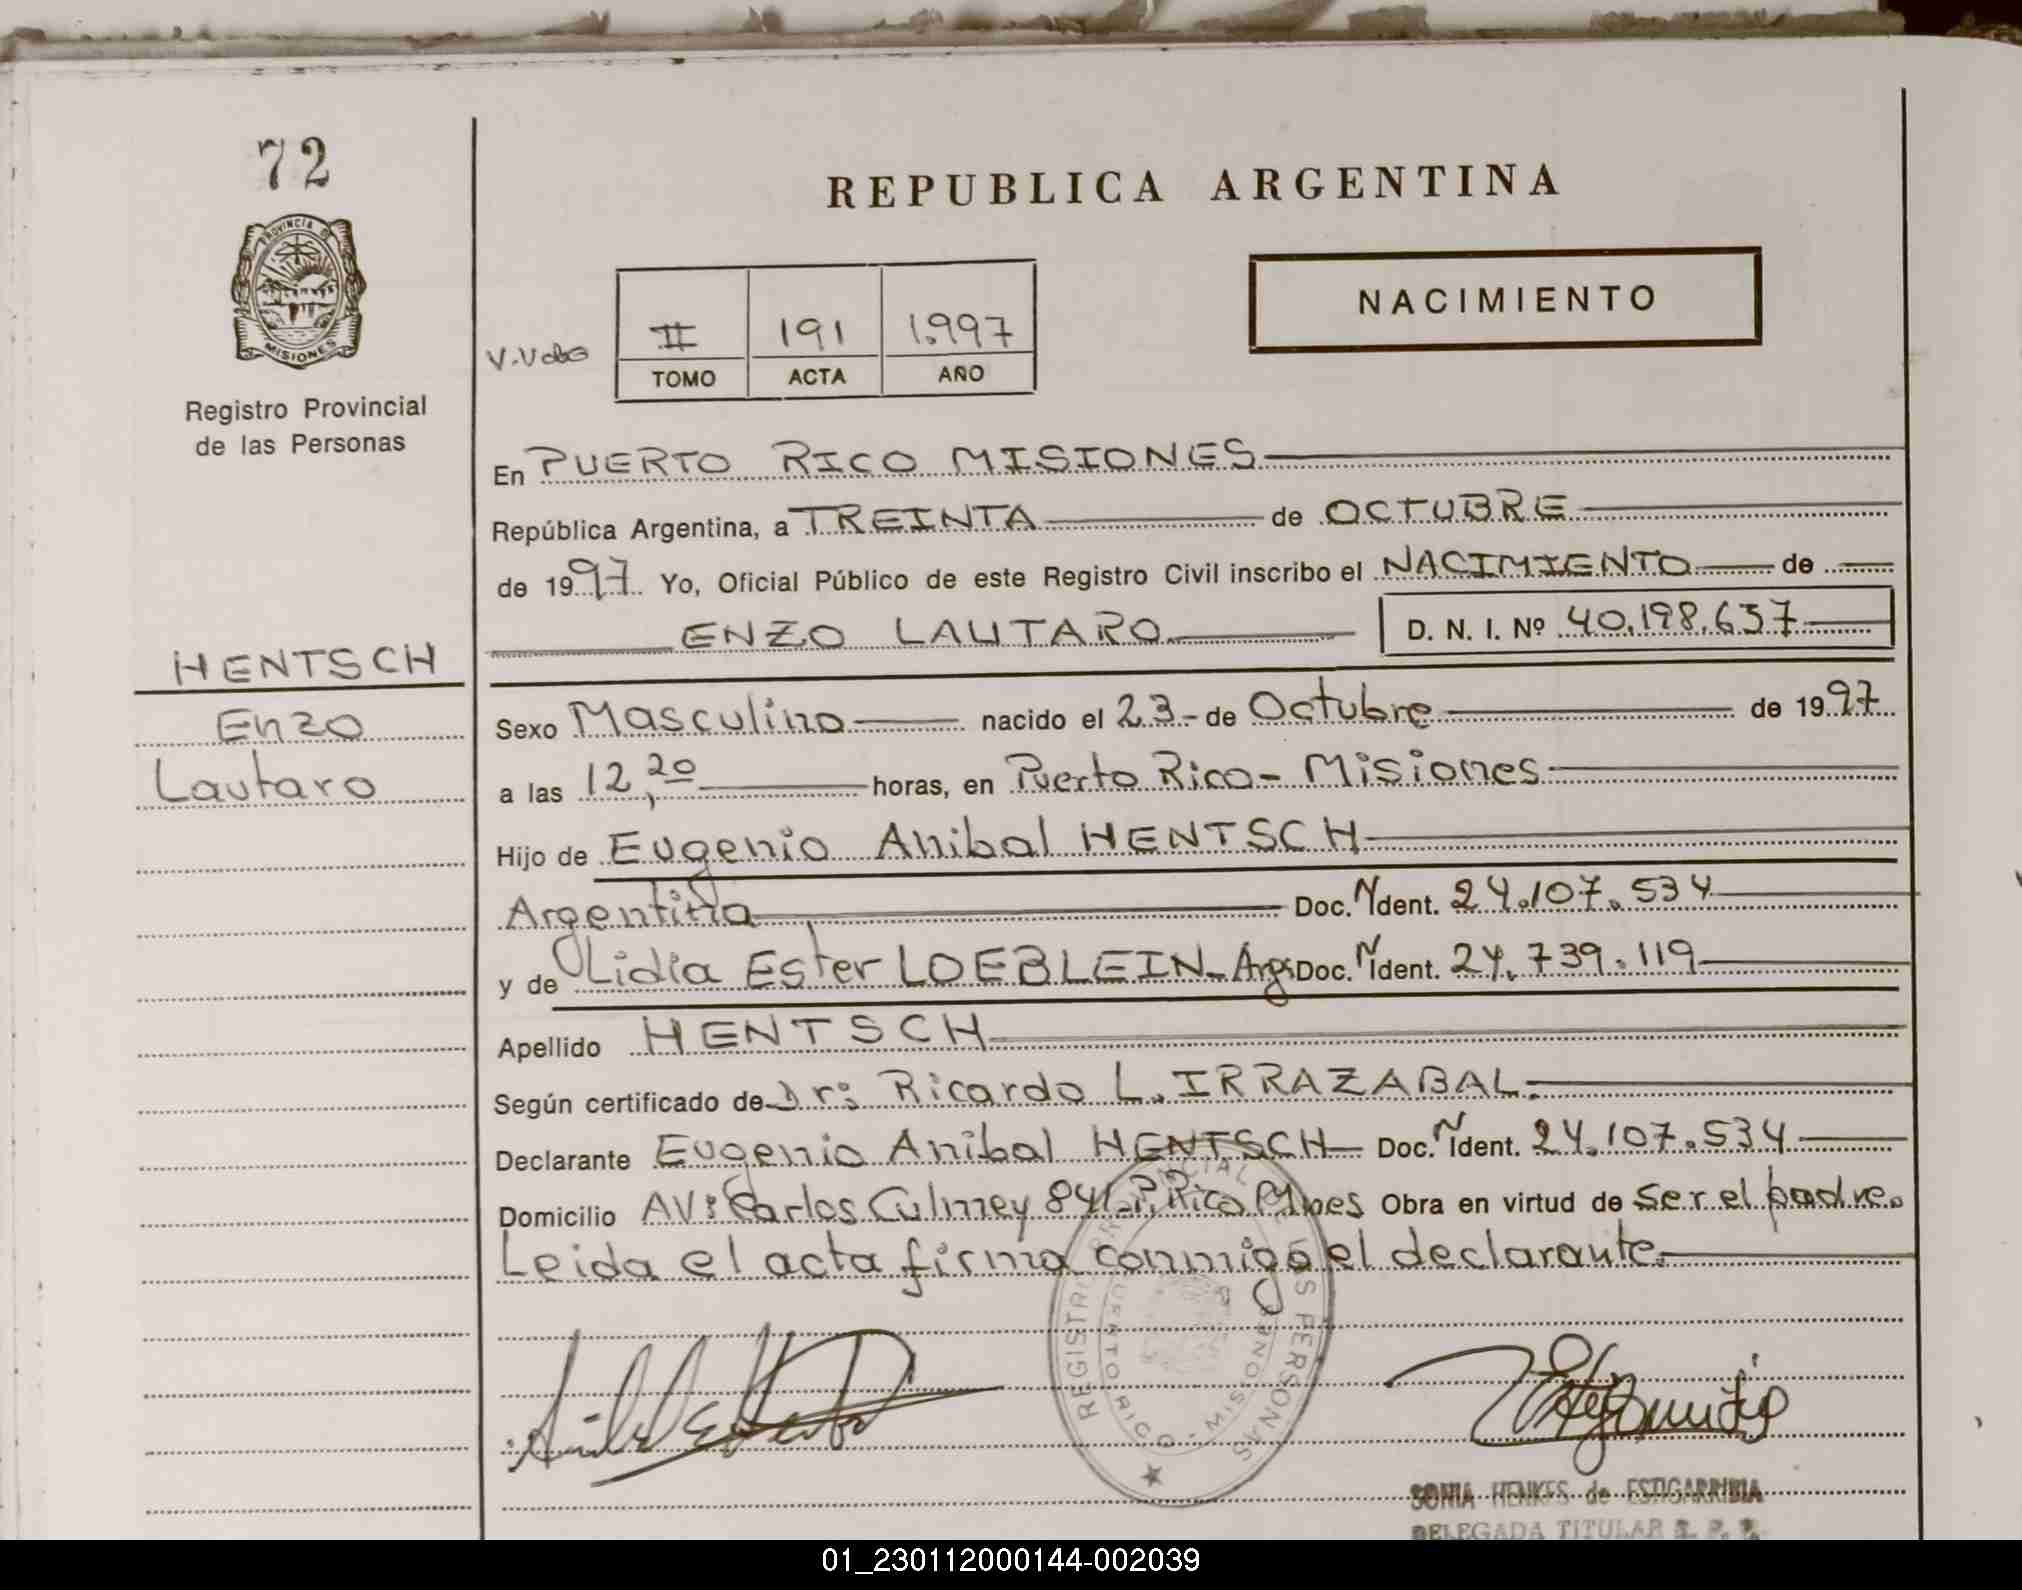 72
REPUBLICA ARGENTINA
PROVINCIA DE
MISIONES
Registro Provincial
de las Personas
NACIMIENTO
II 191 1.997
TOMO ACTA AÑO
En PUERTO RICO MISIONES
República Argentina, a TREINTA de OCTUBRE
de 1997 Yo, Oficial Público de este Registro Civil inscribo el NACIMIENTO de
ENZO LAUTARO D. N. I. Nº 40.198.637
HENTSCH
Enzo
Lautaro
Sexo Masculino nacido el 23 de Octubre de 1997
a las 12,20 horas, en Puerto Rico - Misiones
Hijo de Eugenio Anibal HENTSCH
Argentina Doc. Ident. 24.107.534
y de Lidia Ester LOEBLEIN - Arg. Doc. Ident. 24.739.119
Apellido HENTSCH
Según certificado de Dr: Ricardo L. IRRAZABAL.
Declarante Eugenio Anibal HENTSCH Doc. Ident. 24.107.534
Domicilio AV: Carlos Culmey 841 P. Rico Mnes Obra en virtud de ser el padre.
Leida el acta firma conmigo el declarante.
REGISTRO PROVINCIAL DE LAS PERSONAS
PUERTO RICO - MISIONES
SONIA HENKES de ESTIGARRIBIA
DELEGADA TITULAR R. P. P.
01_230112000144-002039